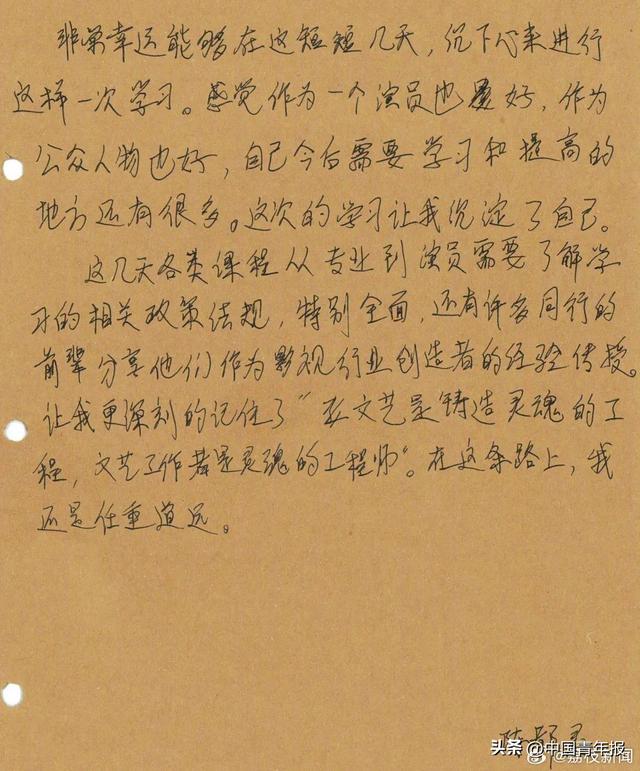 非常幸运能够在这短短几天，沉下心来进行
这样一次学习。感觉作为一个演员也好，作为
公众人物也好，自己今后需要学习和提高的
地方还有很多。这次的学习让我沉淀了自己。
这几天各类课程从专业到演员需要了解学
习的相关政策法规，特别全面，还有许多同行的
前辈分享他们作为影视行业创造者的经验传授。
让我更深刻的记住了“文艺是铸造灵魂的工
程，文艺工作者是灵魂的工程师”。在这条路上，我
还是任重道远。
头条@中国青年报
@荔枝新闻